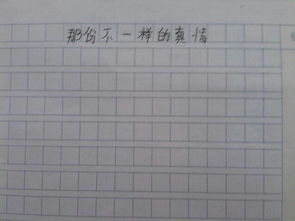 那份不一样的真情